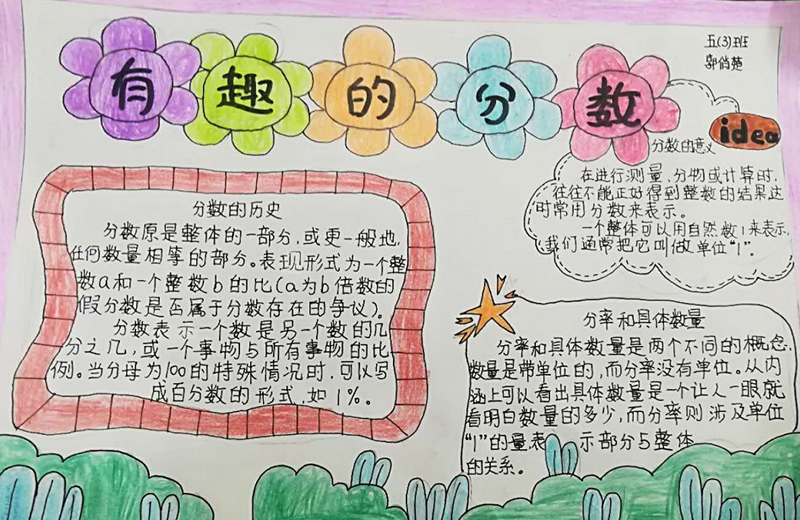 有趣的分数
五(3)班
郭俏楚
idea
分数的意义
在进行测量、分物或计算时,
往往不能正好得到整数的结果,这
时常用分数来表示。
一个整体可以用自然数1来表示,
我们通常把它叫做单位“1”。
分数的历史
分数原是整体的一部分,或更一般地,
任何数量相等的部分。表现形式为一个整
数a和一个整数b的比(a为b倍数的
假分数是否属于分数存在的争议)。
分数表示一个数是另一个数的几
分之几,或一个事物与所有事物的比
例。当分母为100的特殊情况时,可以写
成百分数的形式,如1%。
分率和具体数量
分率和具体数量是两个不同的概念,
数量是带单位的,而分率没有单位。从内
涵上可以看出具体数量是一个让人一眼就
看明白数量的多少,而分率则涉及单位
“1”的量表示部分与整体
的关系。